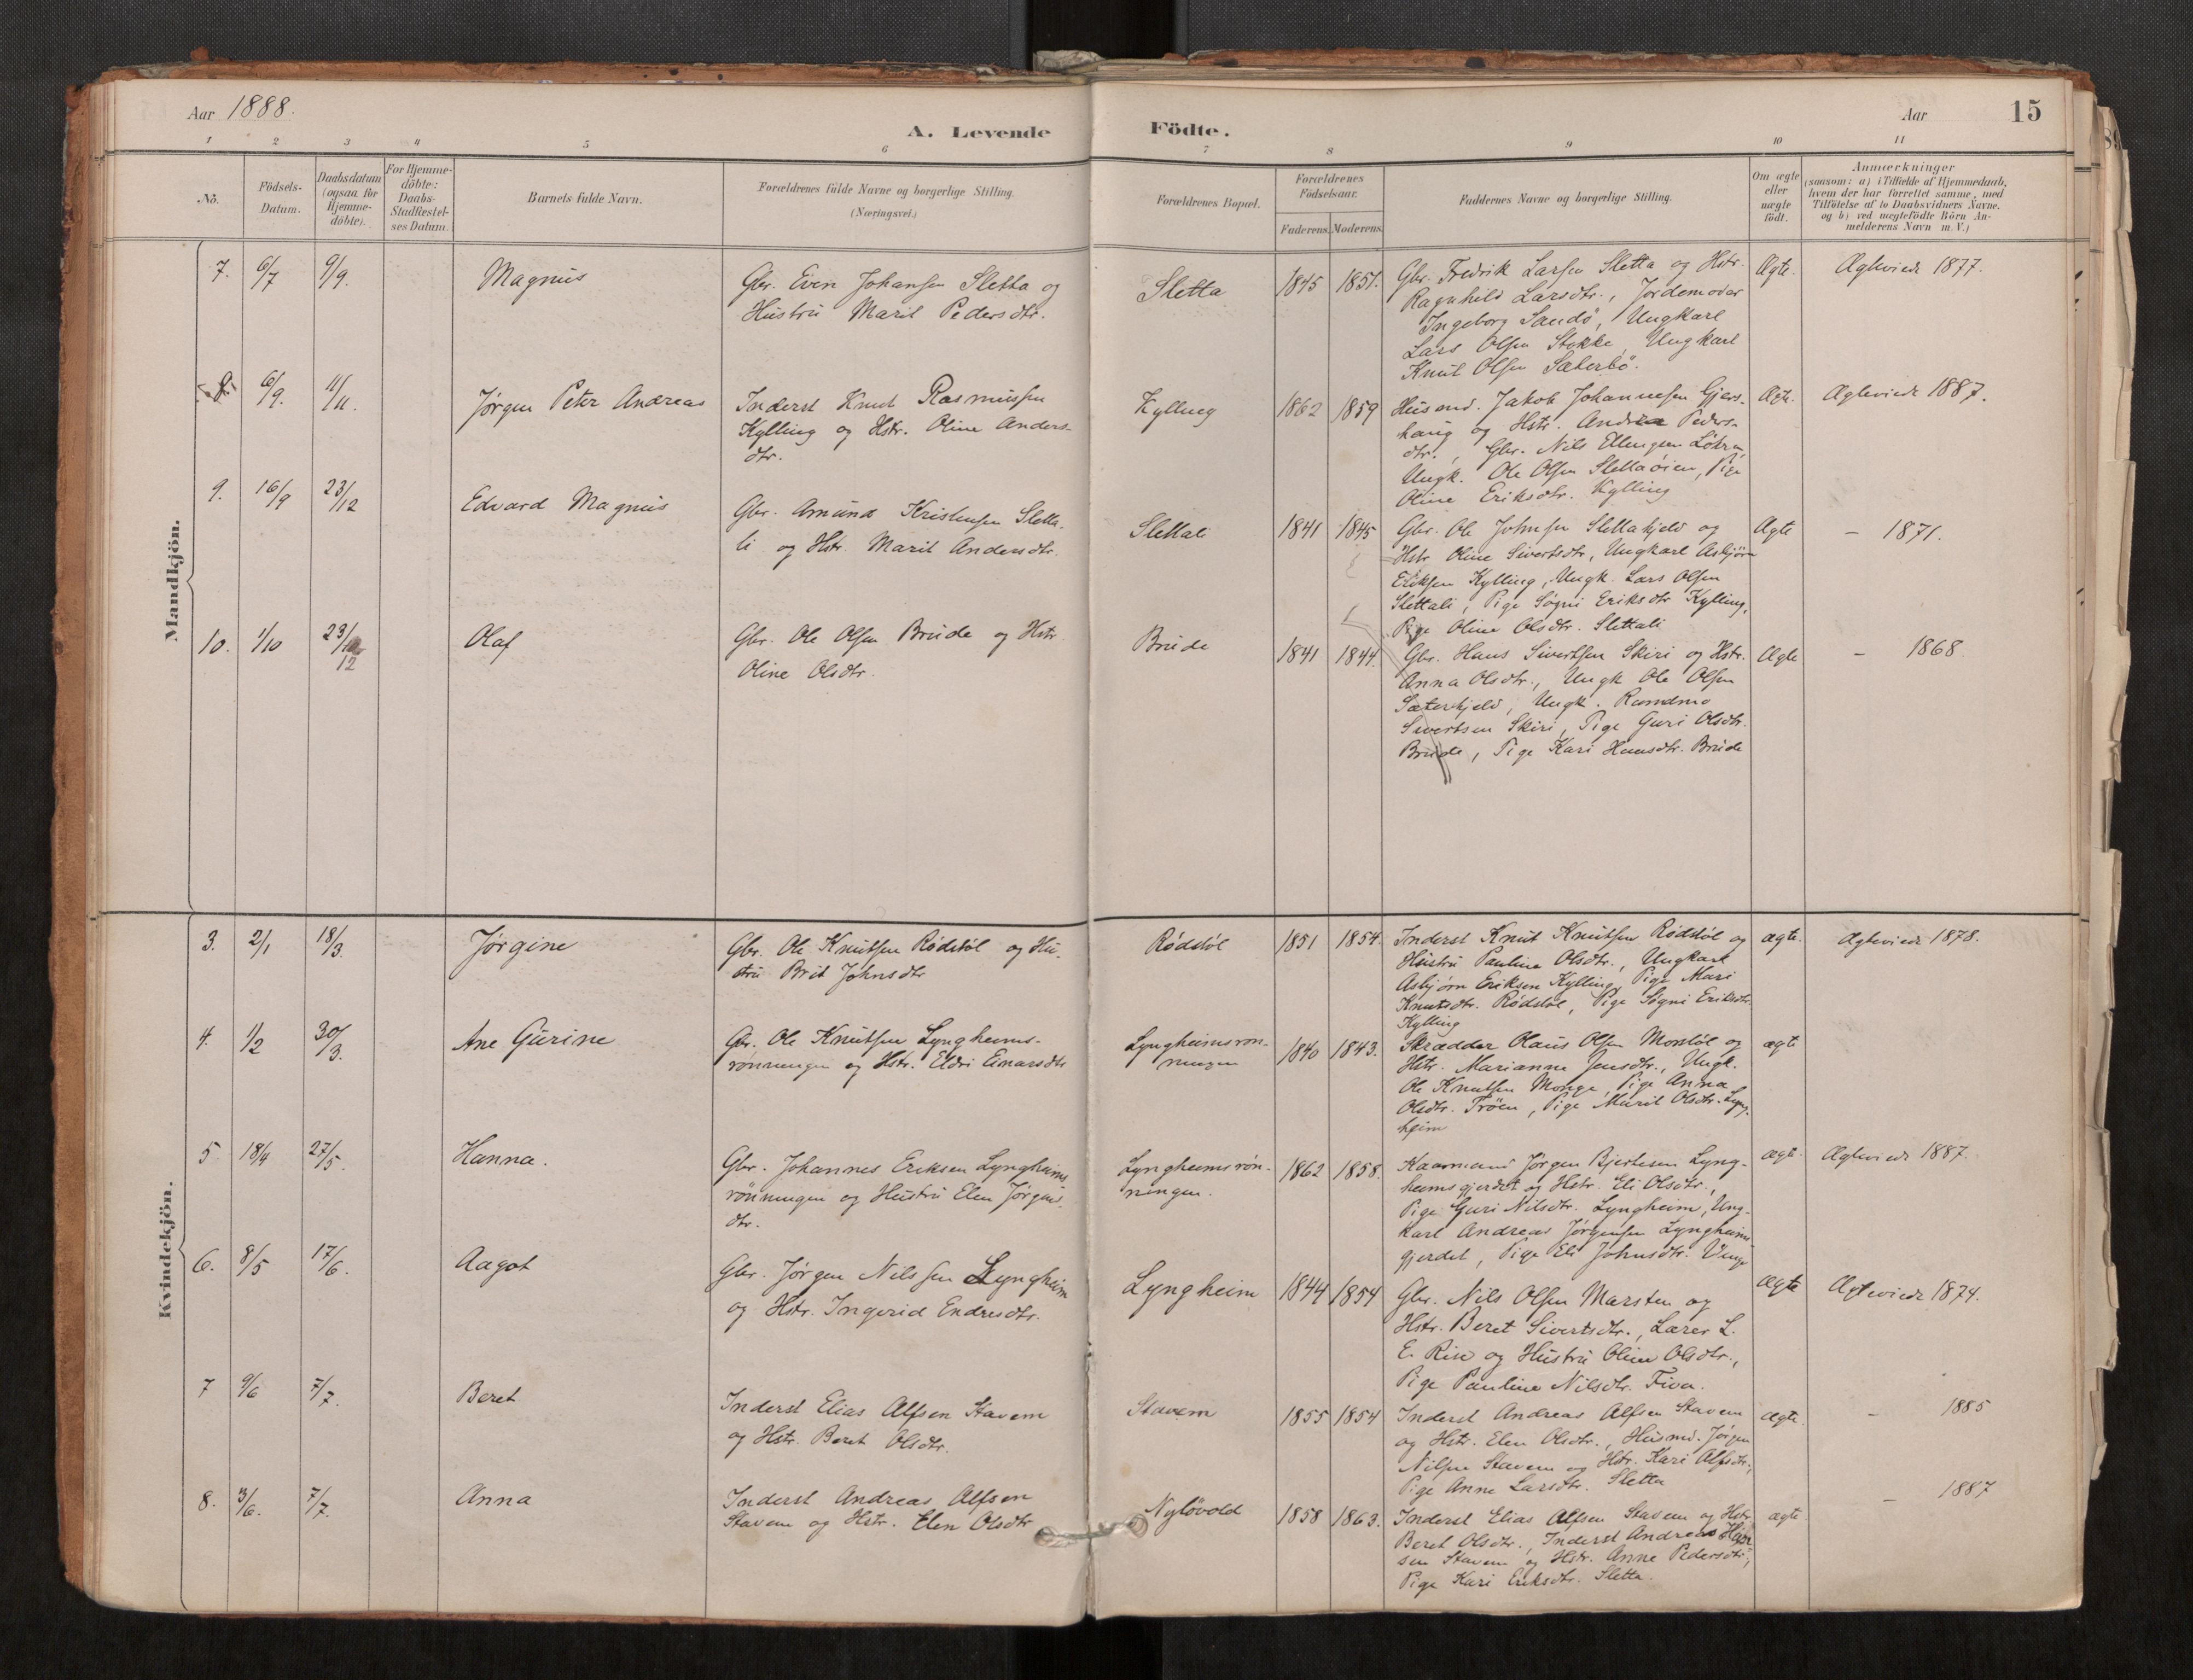 Aar 1888.
A. Levende Födte.
Aar 15
1 2 3 4 5 6 7 8 9 10 11
No.
Födsels-
Datum.
Daabsdatum
(ogsaa for
Hjemme-
döbte).
For Hjemme-
döbte:
Daabs-
Stadfæstel-
ses Datum.
Barnets fulde Navn.
Forældrenes fulde Navne og borgerlige Stilling.
(Næringsvei.)
Forældrenes Bopæl.
Forældrenes
Födselsaar.
Faderens. Moderens.
Faddernes Navne og borgerlige Stilling.
Om ægte
eller
uægte
födt.
Anmærkninger
(saasom: a) i Tilfælde af Hjemmedaab,
hvem der har forrettet samme, med
Tilföielse af to Daabsvidners Navne,
og b) ved uægtefödte Börn An-
melderens Navn m. V.)
Mandkjön.
7. 6/7 9/9. Magnus
Gbr. Even Johansen Sletta og
Hustru Marit Pedersdtr.
Sletta 1845 1851.
Gbr. Fredrik Larsen Sletta og Hstr.
Ragnhild Larsdtr., Jordemoder
Ingeborg Sandö, Ungkarl
Lars Olsen Stokke, Ungkarl
Knut Olsen Sæterbö.
Ægte. Ægteviede 1877.
8 6/9. 11/11. Jørgen Peter Andreas
Inderst Knut Rasmussen
Kylling og Hstr. Oline Anders-
dtr.
Kylling 1862 1859
Husmd. Jakob Johannesen Gjers-
haug og Hstr. Andrea Peders-
dtr., Gbr. Nils Ellingsen
Ungk. Ole Olsen Slettaöien, Pige
Oline Eriksdtr. Kylling
Ægte. Ægteviede 1887.
9. 16/9 23/12 Edvard Magnus
Gbr. Amund Kristensen Sletta-
li og Hstr. Marit Andersdtr.
Slettali 1841 1845
Gbr. Ole Johnsen Slettakjeld og
Hstr Oline Sivertsdtr, Ungkarl Asbjörn
Eriksen Kylling, Ungk. Lars Olsen
Slettali, Pige Sögni Eriksdtr Kylling,
Pige Oline Olsdtr. Slettali
Ægte – 1871.
10. 1/10 23/12 Olaf
Gbr. Ole Olsen Brude og Hstr.
Oline Olsdtr.
Brude 1841 1844.
Gbr. Hans Sivertsen Skiri og Hstr.
Anna Olsdtr., Ungk Ole Olsen
Sæterkjeld, Ungk.
Sivertsen Skiri, Pige Guri Olsdtr.
Brude, Pige Kari Hansdtr. Brude
Ægte – 1868
Kvindekjön.
3. 2/1 18/3. Jørgine
Gbr. Ole Knutsen Rødstøl og Hu-
stru Brit Johnsdtr
Rødstøl 1851 1854.
Inderst Knut Knutsen Rødstøl og
Hustru Pauline Olsdtr., Ungkarl
Asbjørn Eriksen Kylling, Pige Mari
Knutsdtr. Rødstøl, Pige Sögni Eriksdtr.
Kylling
ægte. Ægteviede 1878.
4. 1/2 30/3. Ane Gurine
Gbr. Ole Knutsen Lyngheims-
rønningen og Hstr. Eldri Einarsdtr
Lyngheimsrøn-
ningen 1840 1843.
Skrædder Olaus Olsen Morstøl og
Hstr. Marianne Jensdtr., Ungk.
Ole Knutsen Monge, Pige Anna
Olsdtr. Trøen, Pige Marit Olsdtr. Lyng-
heim
ægte
5 18/4 27/5. Hanna.
Gbr. Johannes Eriksen Lyngheims
rønningen og Hustru Elen Jørgens-
dtr.
Lyngheimsrøn-
ningen. 1862 1858.
Kaarmand Jørgen Bjertesen Lyng-
heimsgjerdet og Hstr. Eli Olsdtr.,
Pige Guri Nilsdtr. Lyngheim, Ung-
karl Andreas Jørgensen Lyngheims
gjerdet, Pige Eli Johnsdtr.
ægte. Ægteviede 1887.
6. 8/5 17/6. Aagot
Gbr. Jørgen Nilssen Lyngheim
og Hstr. Ingerid Endresdtr.
Lyngheim 1844 1854
Gbr. Nils Olsen Marsten og
Hstr. Beret Sivertsdtr., Lærer L.
E. Rise og Hustru Oline Olsdtr.,
Pige Pauline Nilsdtr. Fiva.
ægte Ægteviede 1874.
7 9/6 7/7. Beret
Inderst Elias Alfsen Stavem
og Hstr. Beret Olsdtr.
Stavem 1855 1854
Inderst Andreas Alfsen Stavem
og Hstr. Elen Olsdtr., Husmd. Jörgen
Nilsen Stavem og Hstr. Kari Alfsdtr.,
Pige Anne Larsdtr. Sletta
ægte. – 1885
8. 3/6. 7/7. Anna
Inderst Andreas Alfsen
Stavem og Hstr. Elen Olsdtr
Nyløvold 1858 1863.
Inderst Elias Alfsen Stavem og Hstr
Beret Olsdtr., Inderst Andreas
sen Stavem og Hstr. Anne Pedersdtr.,
Pige Kari Eriksdtr. Sletta.
ægte – 1887